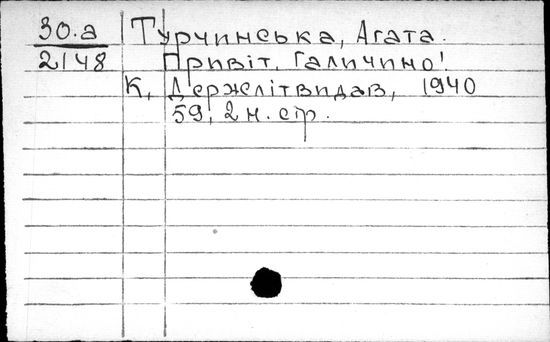 30.а Турчинська, Агата.
2148 Привіт, Галичино!
К, Держлітвидав, 1940
59, 2 н. стр.